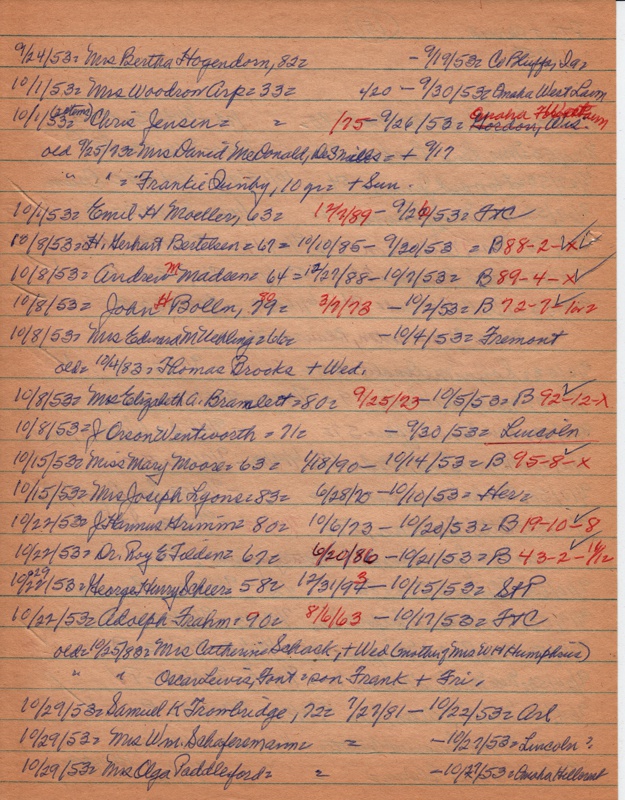 9/24/53= Mrs Bertha Hogendorn, 82= - 9/19/53= Co Bluffs, Ia=
10/1/53= Mrs Woodrow Arp= 33= 4/20 - 9/30/53= Omaha West Lawn
10/1/53= (2 items) Chris Jensen= = 1/75- 9/26/53= Gordon, Wis. Omaha
old 9/25/73= Mrs David McDonald, = + 9/17
" " = Frankie Quinby, 10 yr= + Sun.
10/1/53= Emil H Moeller, 63= 12/2/89 - 9/26/53= FTC
10/8/53= H. Gerhart Bertelsen= 67= 10/10/85- 9/30/53 = B 88-2-x
10/8/53= Andrew M Madsen= 64= 12/27/88- 10/7/53= B 89-4-x
10/8/53= John H Bolln, 79= 80 3/7/73 - 10/2/53= B 72-7-
10/8/53= Mrs Edward M Uehling= 66= - 10/4/53= Fremont
old= 10/4/83= Thomas Brooks + Wed.
10/8/53= Mrs Elizabeth A. Bramlett= 80= 9/25/23- 10/5/53= B 92-12-x
10/8/53= J Orson Wentworth = 71= - 9/30/53= Lincoln
10/15/53= Miss Mary Moore= 63= 4/8/90- 10/14/53= B 95-8-x
10/15/53= Mrs Joseph Lyons= 83= 6/28/70 - 10/10/53= Her=
10/22/53= J Hannus Grimm= 80= 10/6/73 - 10/20/53= B 19-10-8
10/22/53= Dr. Roy E Tilden= 67= 6/20/86 - 10/21/53= B 43-2-
10/22/53= 29 George Henry Scheer= 58= 12/31/97 3 - 10/15/53= StP
10/22/53= Adolph Frahm= 90= 8/6/63 - 10/17/53= FTC
old= 10/25/83= Mrs Catherine Schack, + Wed (mother Mrs WH Humphries)
" " Oscar Lewis, Font= son Frank + Fri.
10/29/53= Samuel K Trowbridge, 72= 7/27/81 - 10/22/53= Arl
10/29/53= Mrs Wm. Schafersmann= = - 10/27/53= Lincoln?
10/29/53= Mrs Olga Paddleford= = - 10/27/53= Omaha Hillcrest